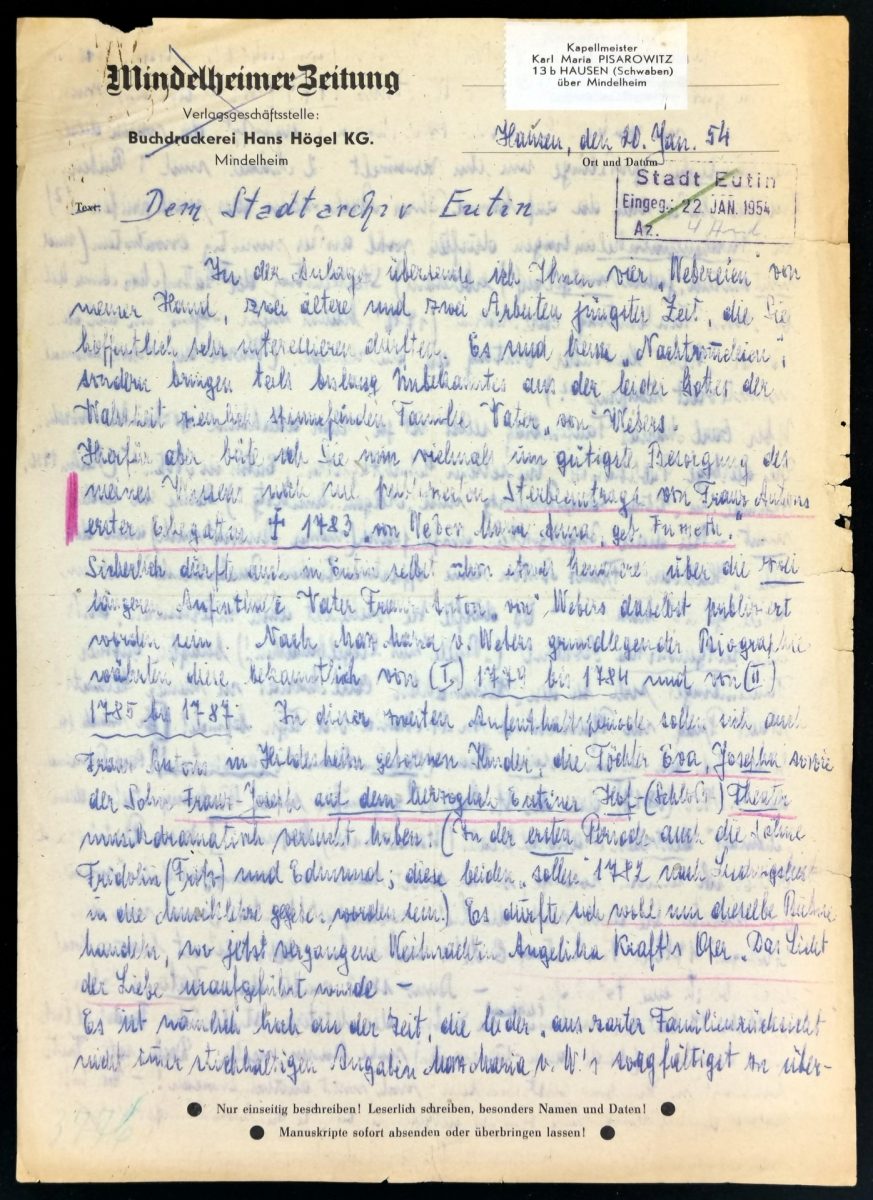 Mindelheimer Zeitung
Verlagsgeschäftsstelle:
Buchdruckerei Hans Högel KG.
Mindelheim
Kapellmeister
Karl Maria PISAROWITZ
13 b HAUSEN (Schwaben)
über Mindelheim
Hausen, den 20. Jan. 54
Ort und Datum
Stadt Eutin
Eingeg.: 22 JAN. 1954
Az.
Text: Dem Stadtarchiv Eutin
In der Anlage übersende ich Ihnen vier „Webereien" von
meiner Hand, zwei ältere und zwei Arbeiten jüngster Zeit, die Sie
hoffentlich sehr interessieren dürften. Es sind keine
sondern bringen teils bislang Unbekanntes aus der leider Gottes der
Wahrheit ziemlich spinnefeinden Familie Vater „von" Webers.
Hierfür aber bäte ich Sie nun vielmals um gütigste Besorgung des
meines Wissens noch nie publizierten Sterbeeintrags von Franz Antons
erster Ehegattin † 1783 „von Weber Maria Anna, geb.
Sicherlich dürfte auch in Eutin selbst schon etwas über die zwei
längeren Aufenthalte Vater Franz Anton „von" Webers daselbst publiziert
worden sein. Nach Max Maria v. Webers grundlegender Biographie
währten diese bekanntlich von (I.) 1779 bis 1784 und von (II)
1785 bis 1787. In dieser zweiten Aufenthaltsperiode sollen sich auch
Franz Antons in Hildesheim geborenen Kinder, die Töchter Eva, Josepha sowie
der Sohn Franz-Joseph auf dem herzoglich Eutiner Hof-(Schloß-) Theater
musikdramatisch versucht haben. (In der ersten Periode auch die Söhne
Fridolin (Fritz) und Edmund, diese beiden „sollen" 1782 nach Ludwigslust
in die Musiklehre gegeben worden sein.) Es dürfte sich wohl um dieselbe Bühne
handeln, wo jetzt vergangene Weihnachten Angelika Kraft's Oper „Das Licht
der Liebe uraufgeführt wurde –
Es ist nämlich hoch an der Zeit, die leider „aus zarter Familienrücksicht"
nicht immer stichhältigen Angaben Max Maria v. W.'s sorgfältigst zu über-
Nur einseitig beschreiben! Leserlich schreiben, besonders Namen und Daten!
Manuskripte sofort absenden oder überbringen lassen!